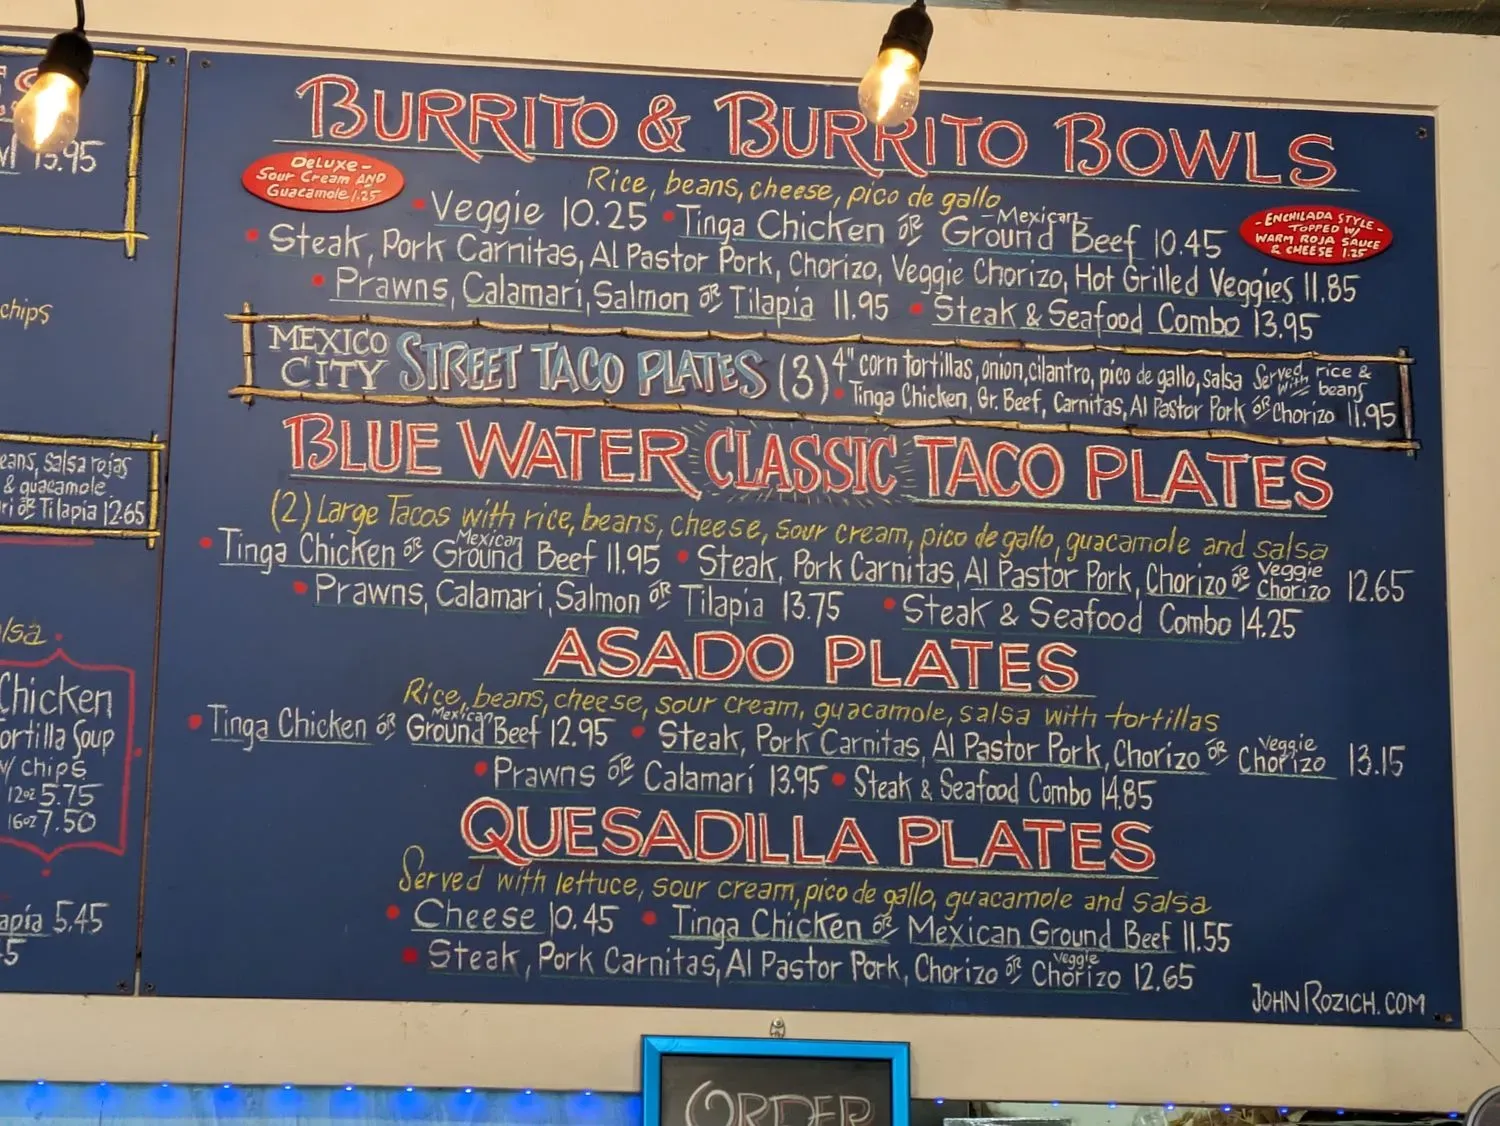 15.95
chips
eans, salsa rojas
& guacamole
ri OR Tilapia 12.65
lsa
Chicken
ortilla Soup
w/ chips
12oz 5.75
16oz 7.50
apia 5.45
BURRITO & BURRITO BOWLS
DELUXE-
SOUR CREAM AND
GUACAMOLE 1.25
Rice, beans, cheese, pico de gallo
• Veggie 10.25 • Tinga Chicken OR -Mexican- Ground Beef 10.45
-ENCHILADA STYLE-
TOPPED W/
WARM ROJA SAUCE
& CHEESE 1.25
• Steak, Pork Carnitas, Al Pastor Pork, Chorizo, Veggie Chorizo, Hot Grilled Veggies 11.85
• Prawns, Calamari, Salmon OR Tilapia 11.95 • Steak & Seafood Combo 13.95
MEXICO
CITY
STREET TACO PLATES (3)
4" corn tortillas, onion, cilantro, pico de gallo, salsa Served with rice & beans
• Tinga Chicken, Gr. Beef, Carnitas, Al Pastor Pork OR Chorizo 11.95
BLUE WATER CLASSIC TACO PLATES
(2) Large Tacos with rice, beans, cheese, sour cream, pico de gallo, guacamole and salsa
• Tinga Chicken OR Mexican Ground Beef 11.95 • Steak, Pork Carnitas, Al Pastor Pork, Chorizo OR Veggie Chorizo 12.65
• Prawns, Calamari, Salmon OR Tilapia 13.75 • Steak & Seafood Combo 14.25
ASADO PLATES
Rice, beans, cheese, sour cream, guacamole, salsa with tortillas
• Tinga Chicken OR Mexican Ground Beef 12.95 • Steak, Pork Carnitas, Al Pastor Pork, Chorizo OR Veggie Chorizo 13.15
• Prawns OR Calamari 13.95 • Steak & Seafood Combo 14.85
QUESADILLA PLATES
Served with lettuce, sour cream, pico de gallo, guacamole and salsa
• Cheese 10.45 • Tinga Chicken OR Mexican Ground Beef 11.55
• Steak, Pork Carnitas, Al Pastor Pork, Chorizo OR Veggie Chorizo 12.65
JOHNROZICH.COM
ORDER